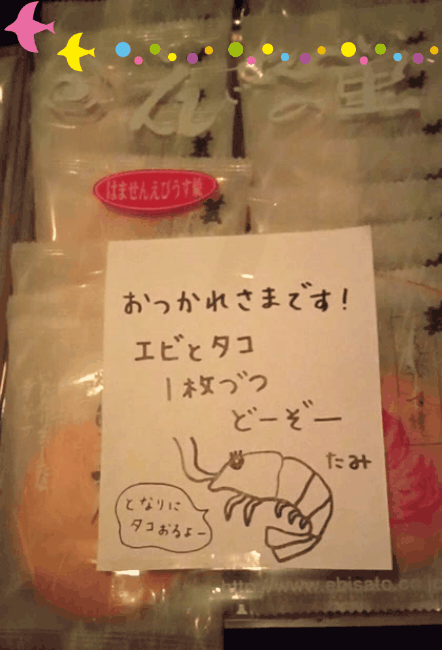 えびの里
はませんえびうす焼
おつかれさまです！
エビとタコ
1枚づつ
どーぞー
たみ
となりに
タコおるよー
http://www.ebisato.co